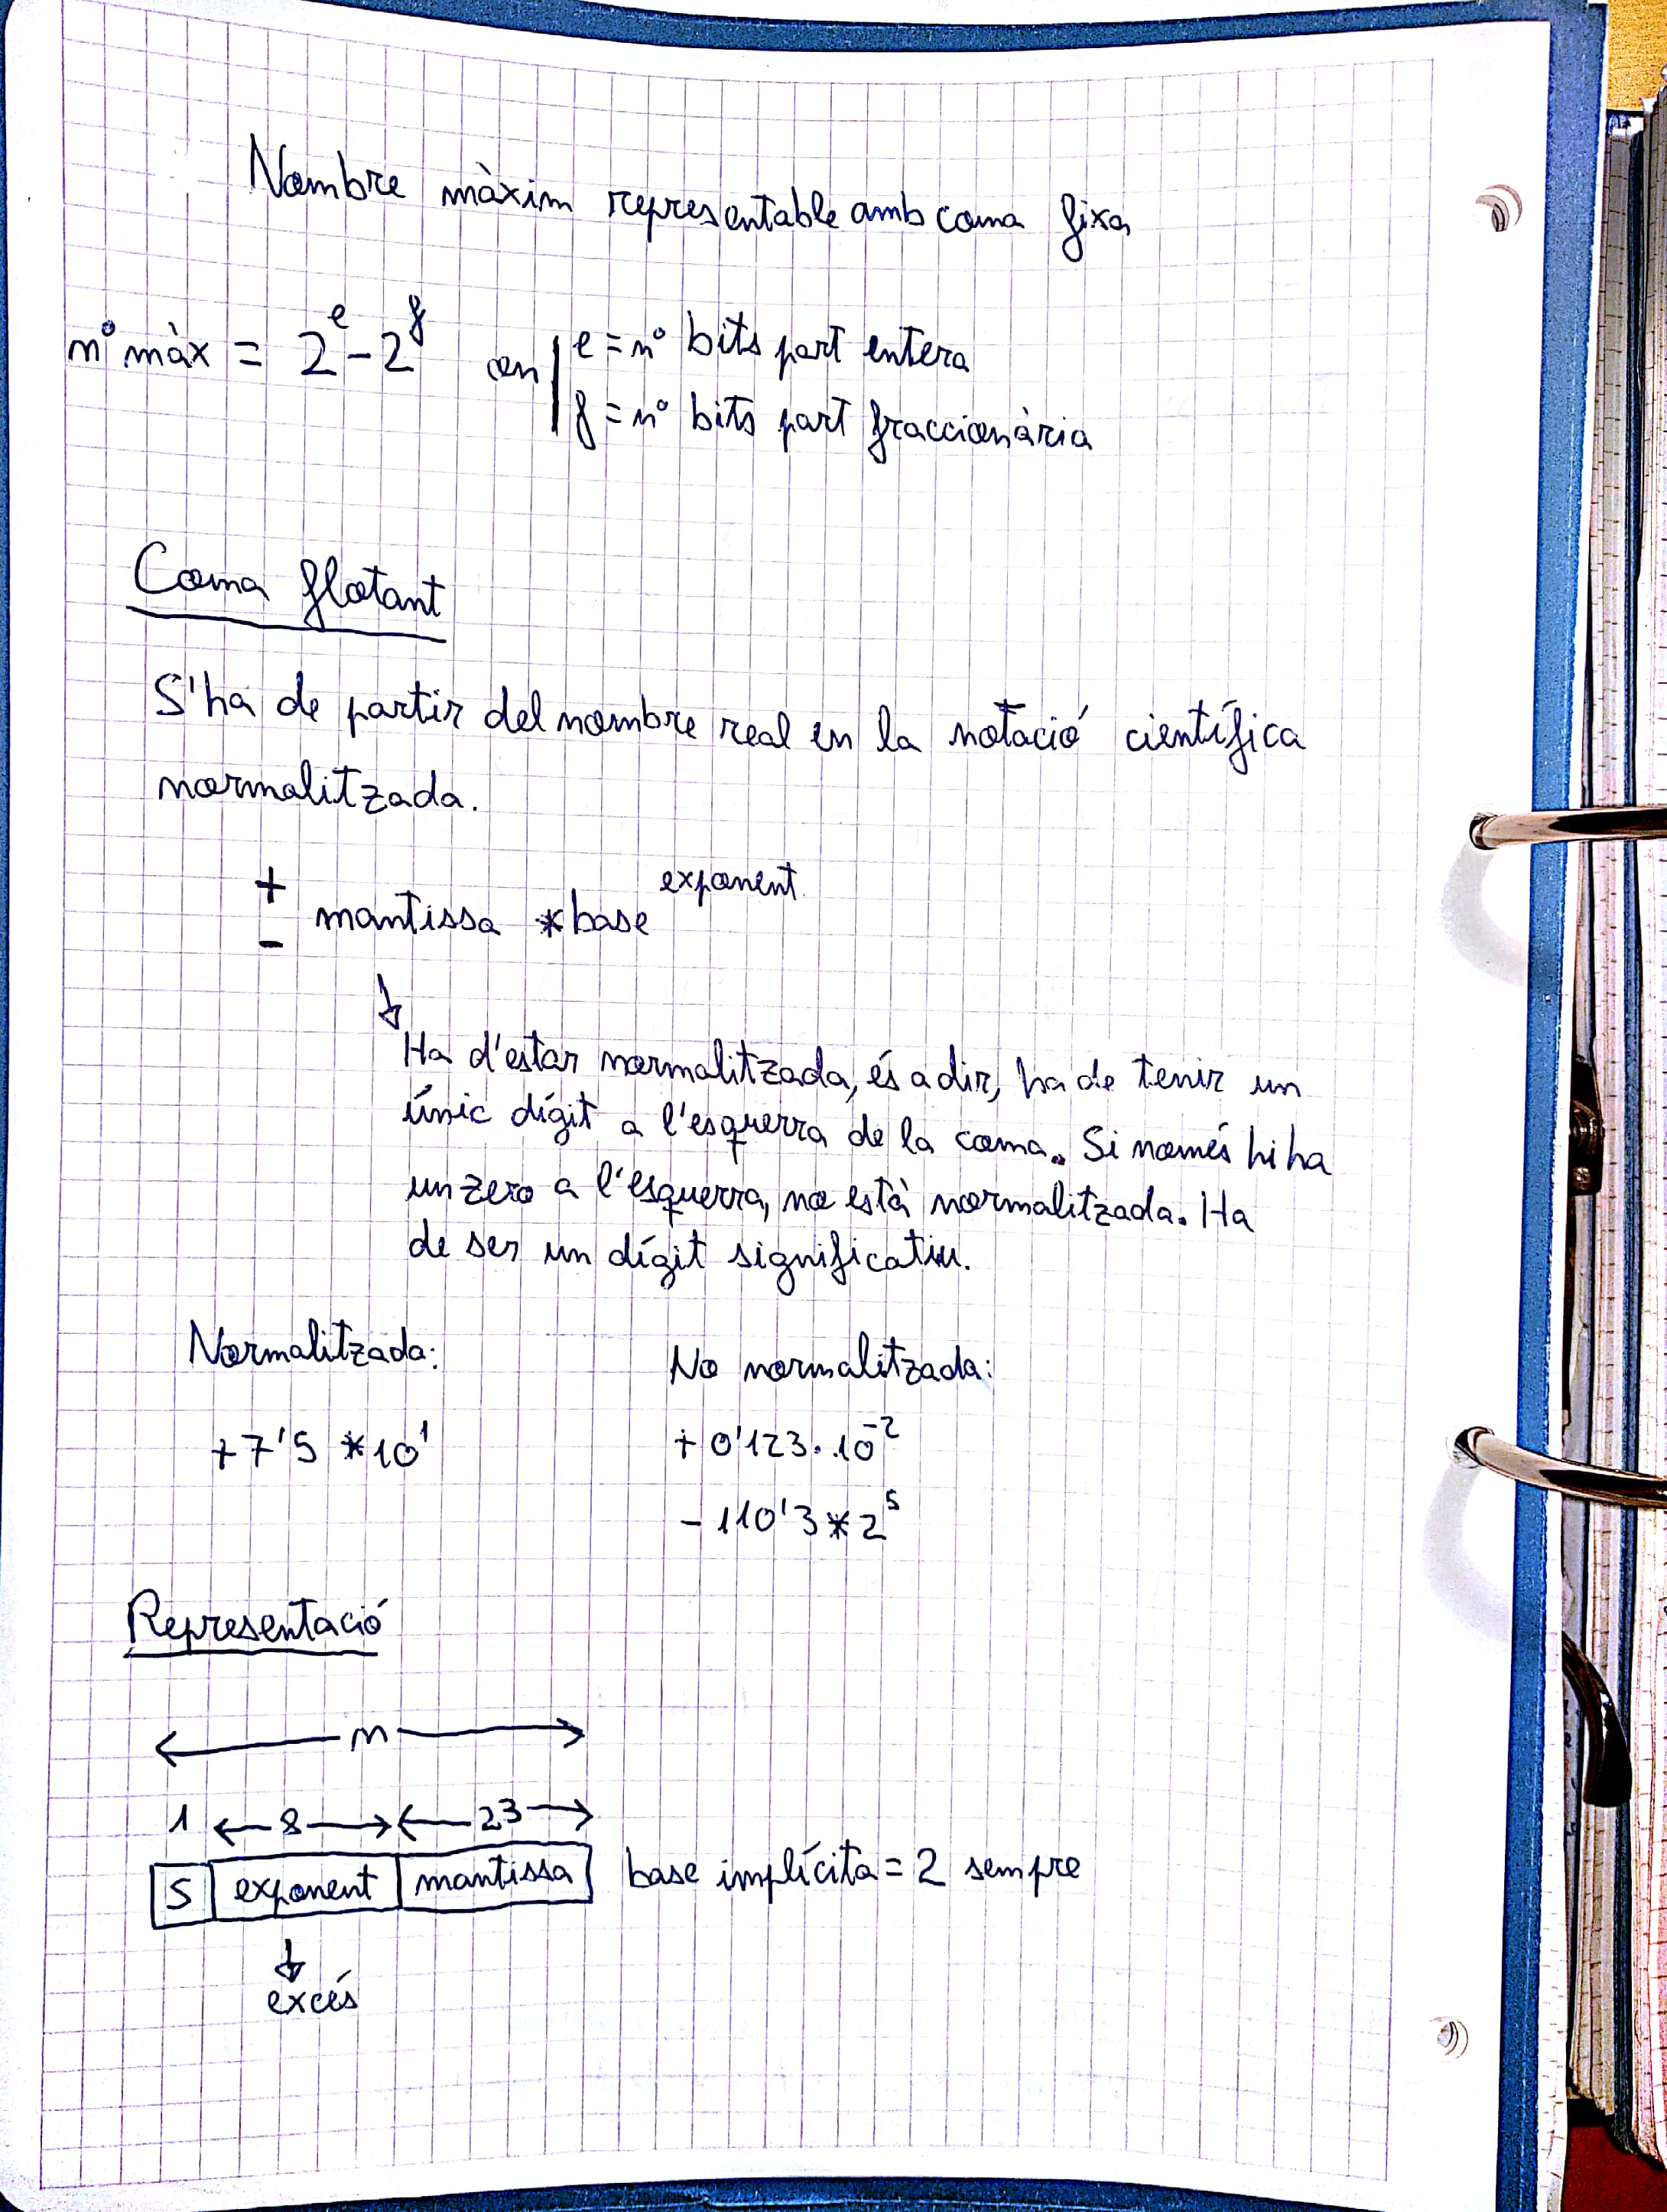 Nombre màxim representable amb coma fixa
nº màx = 2^e - 2^f on | e = nº bits part entera
f = nº bits part fraccionària
Coma flotant
S'ha de partir del nombre real en la notació científica
normalitzada.
+
- mantissa * base^exponent
↓
Ha d'estar normalitzada, és a dir, ha de tenir un
únic dígit a l'esquerra de la coma. Si només hi ha
un zero a l'esquerra, no està normalitzada. Ha
de ser un dígit significatiu.
Normalitzada: No normalitzada:
+7'5 * 10^1 + 0'123 . 10^-2
- 110'3 * 2^5
Representació
← n →
1 ← 8 → ← 23 →
S | exponent | mantissa base implícita = 2 sempre
↓
excés